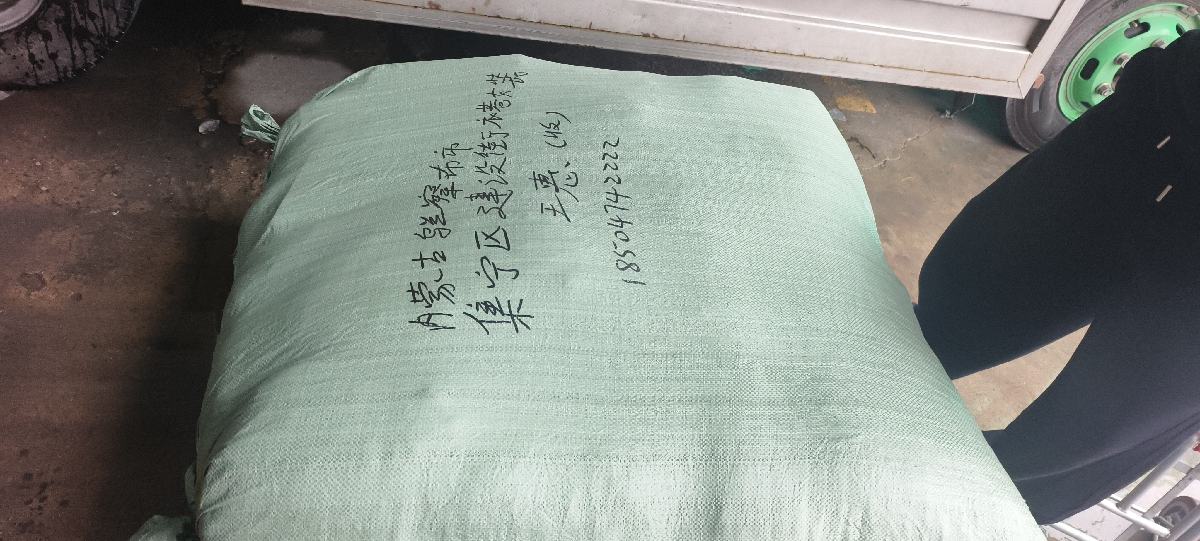 内蒙古乌兰察布市
集宁区建设街木巷女装
王惠 (收)
18504742222